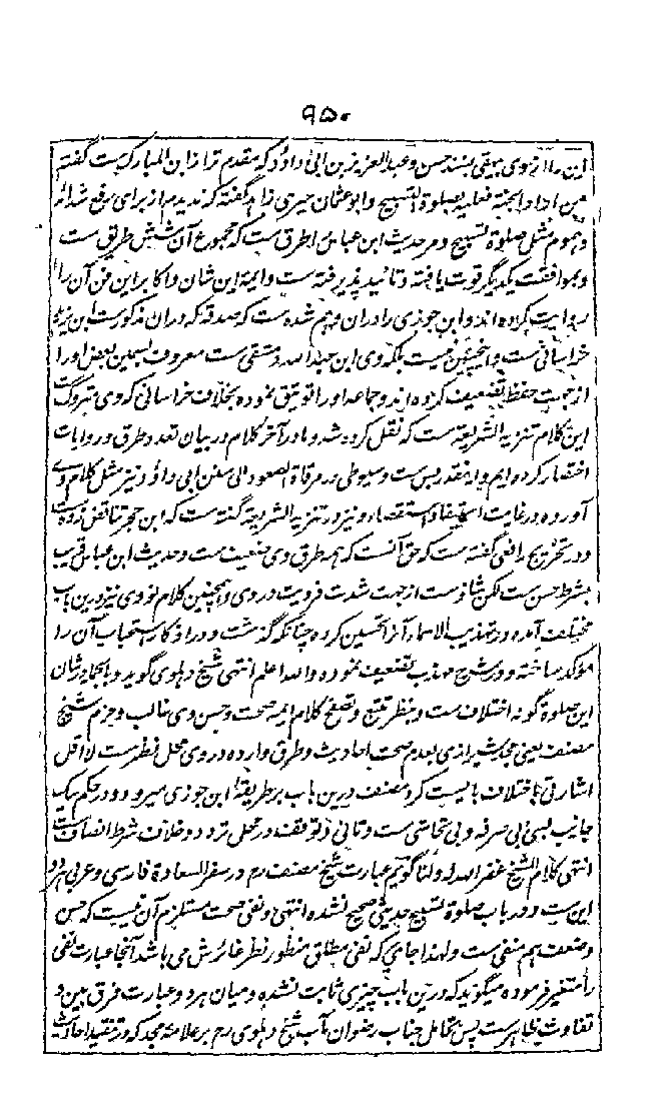 ۹۵۰
این را از وی بیهقی بسند حسن و عبدالعزیز بن ابی داؤد که مقدم تر از ابن المبارک ست گفته
من اراد الجنة فعلیه بصلوة التسبیح و ابو عثمان حیری زاهد گفته که ندیدم از برای رفع شدائد
و هموم مثل صلوة تسبیح و مر حدیث ابن عباس را طرق ست که مجموع آن شش طریق ست
و بموافقت یکدیگر قوت یافته و تائید پذیرفته ست و ایمۀ این شان و اکابر این فن آن را
روایت کرده اند و ابن جوزی را دران وهم شده ست که صدقه که دران مذکورست ابن یزید
خراسانی ست و همچنین نیست بلکه وی ابن عبدالله دمشقی ست معروف بسمین بعض او را
از جهت حفظ تضعیف کرده اند و جماعه او را توثیق نموده بخلاف خراسانی که وی متروک ست
این کلام تنزیه الشریعة ست که نقل کرده شد و ما در آخر کلام در بیان تعدد طرق و روایات
اختصار کرده ایم و اینقدر بس ست و سیوطی در مرقاة الصعود الی سنن ابی داؤد نیز مثل کلام وی
آورده در غایت استیفا و استقصا و نیز در تنزیه الشریعة گفته ست که ابن حجر تناقض کرده ست
و در تخریج رافعی گفته ست که حق آنست که همه طرق وی ضعیف ست و حدیث ابن عباس قریب
بشرط حسن ست لکن شاذ ست از جهت شدت فردیت در وی و همچنین کلام نووی نیز درین باب
مختلف آمده و در تهذیب الاسماء آنرا تحسین کرده چنانکه گذشت و در اذکار استحباب آن را
مؤکد ساخته و در شرح مهذب تضعیف نموده والله اعلم انتهی شیخ دهلوی گوید و بالجمله در شان
این صلوة گونه اختلاف ست و بنظر تتبع و تصفح کلام ایمه صحت و حسن وی غالب و جزم شیخ
مصنف یعنی مجد شیرازی بعدم صحت احادیث و طرق وارده در وی محل نظر ست لا اقل
اشارتی باختلاف بایست کرد مصنف درین باب بر طریقۀ ابن جوزی میرود و در حکم بیک
جانب بسی بی صرفه و بی تحاشی ست و تانی و توقف در محل تردد و خلاف شرط انصاف ست
انتهی کلام الشیخ غفر الله له و انا گویم عبارت شیخ مصنف رح در سفر السعادة فارسی و عربی هر دو
این ست و در باب صلوة تسبیح حدیثی صحیح نشده انتهی و نفی صحت مستلزم آن نیست که حسن
و ضعف هم منفی ست و لهذا جایی که نفی مطلق منظور نظر غائرش می باشد آنجا عبارت نفی
را متغیر فرموده میگوید که درین باب چیزی ثابت نشده و میان هر دو عبارت فرق بین و
تفاوت ظاهر ست پس تحامل جناب رضوان مآب شیخ دهلوی رح بر علامه مجد که در تنقید احادیث